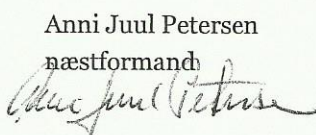 Anni Juul Petersen
næstformand
Anni Juul Petersen